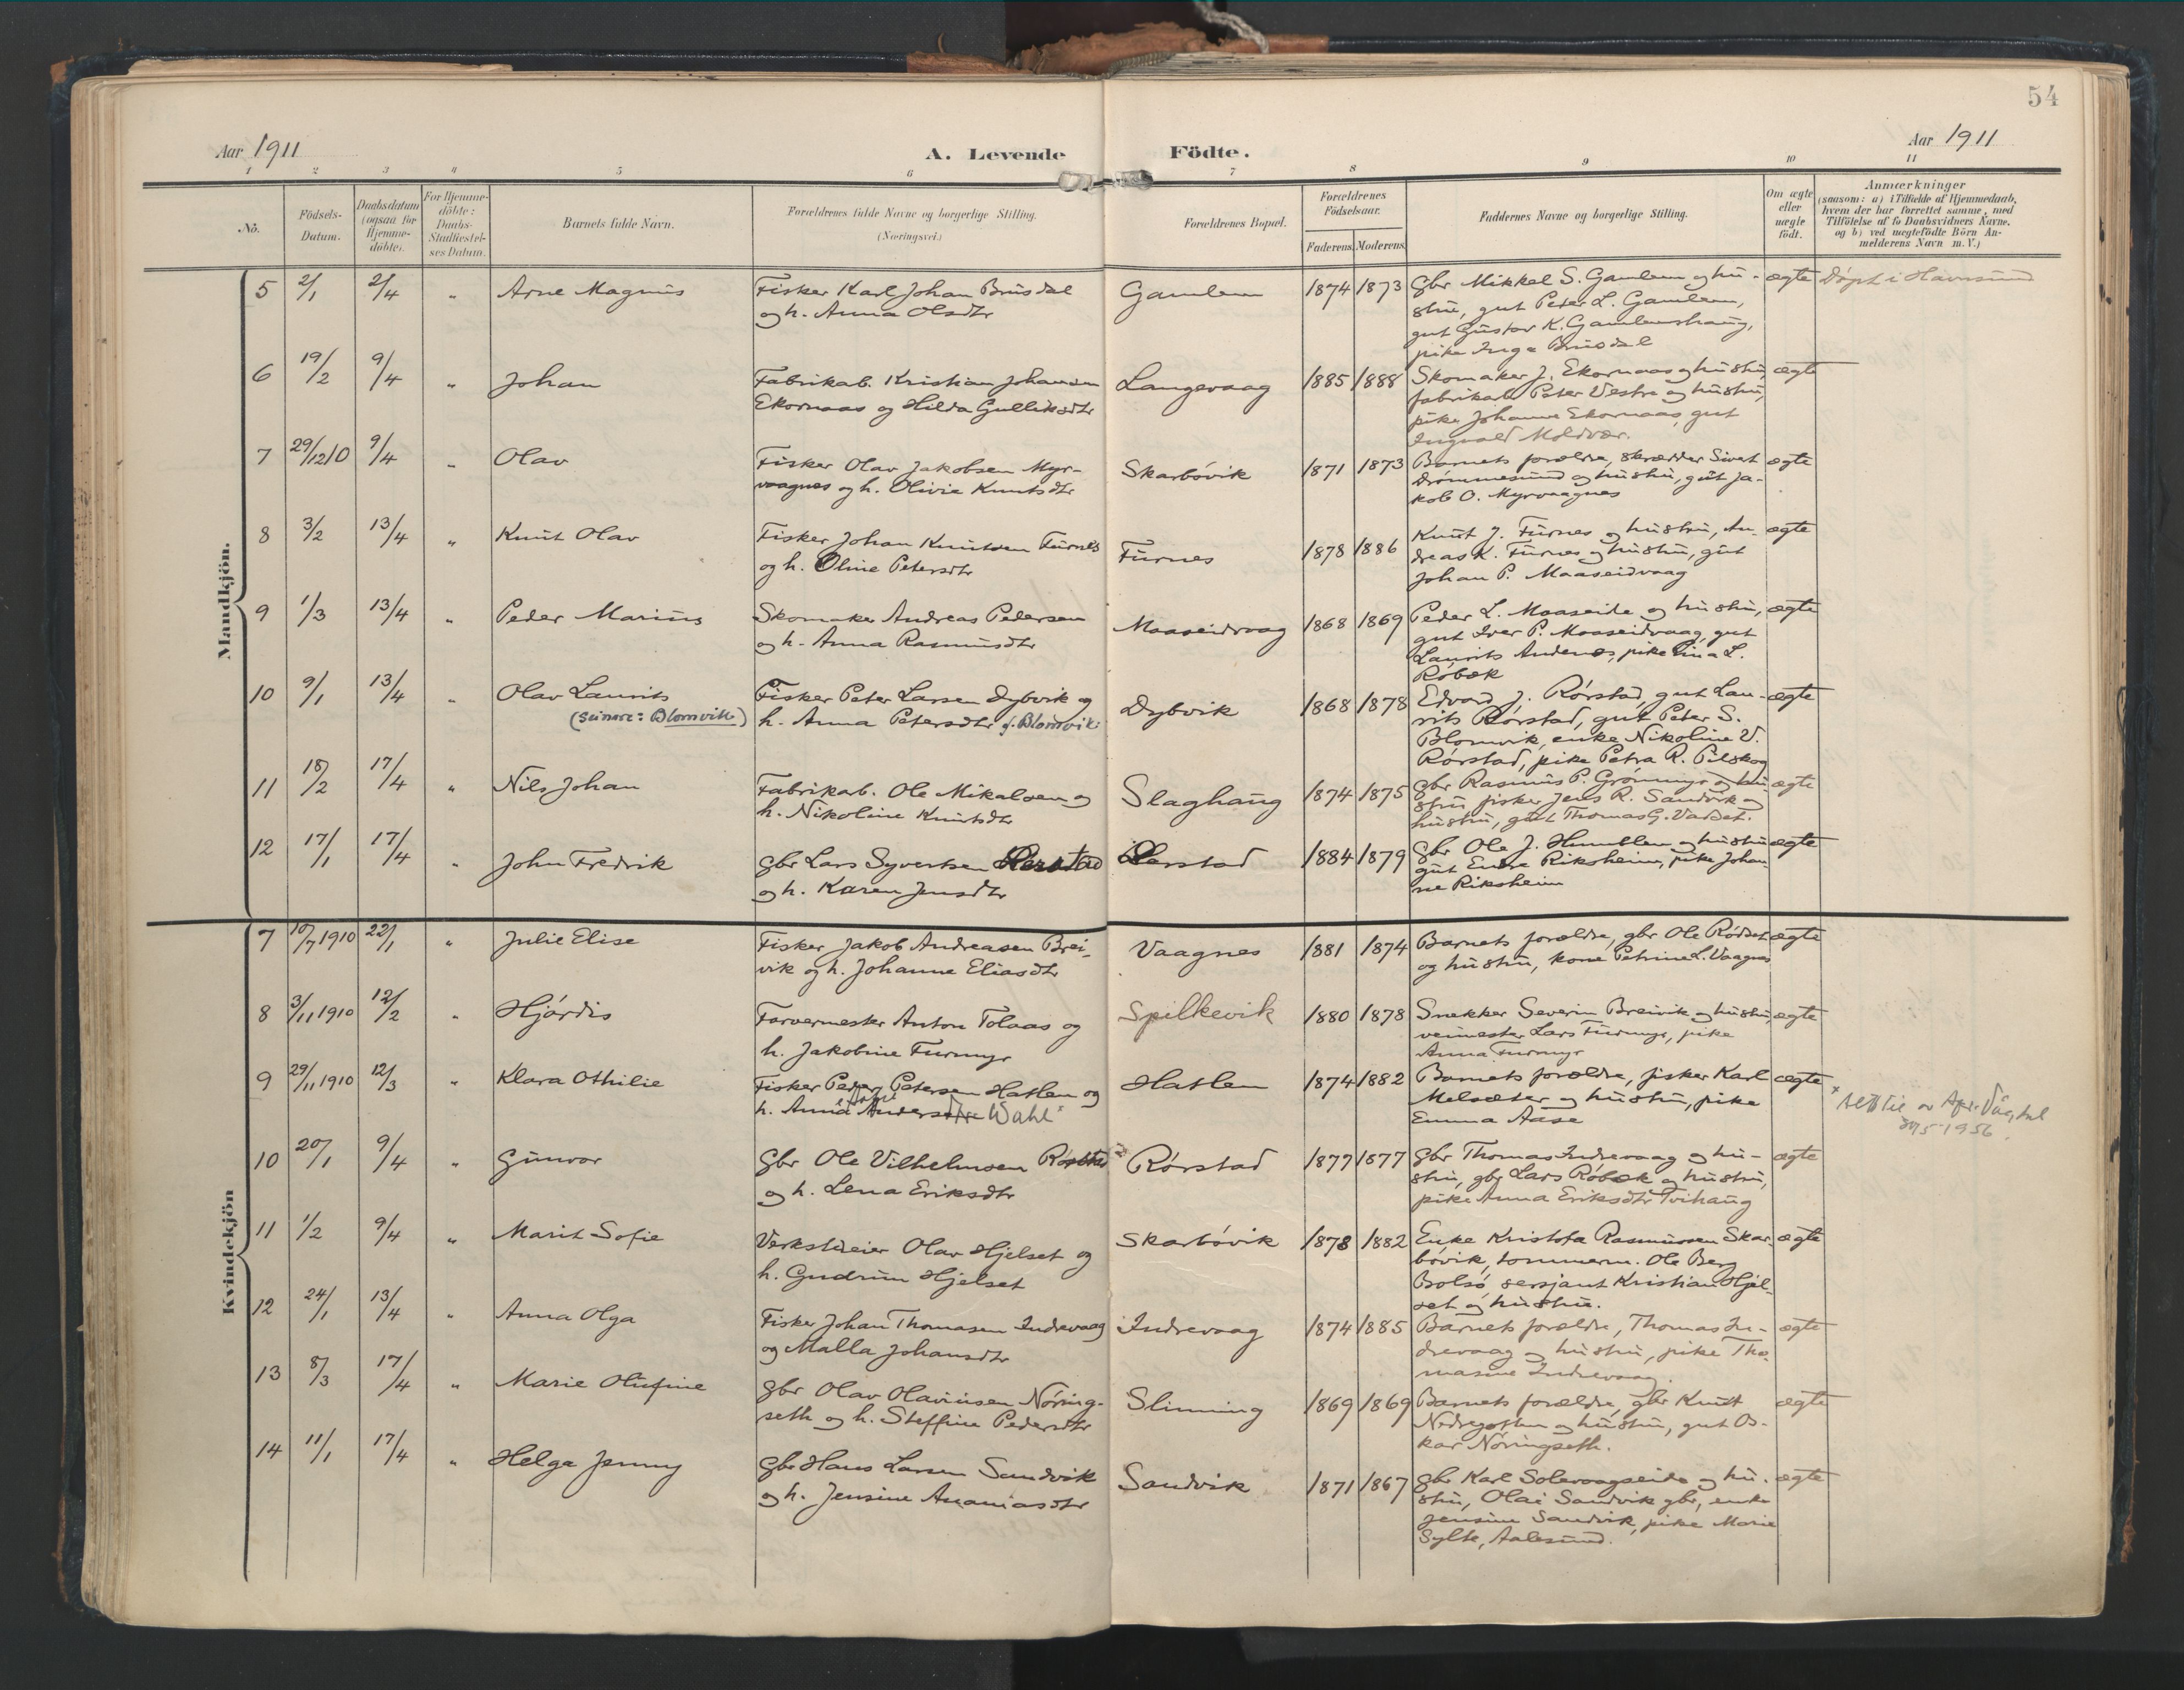 54
Aar 1911
A. Levende Födte.
Aar 1911
1 2 3 4 5 6 7 8 9 10 11
No.
Födsels-
Datum.
Daabsdatum
(ogsaa for
Hjemme-
döbte).
For Hjemme-
döbte:
Daabs-
Stadfæstel-
ses Datum.
Barnets fulde Navn.
Forældrenes fulde Navne og borgerlige Stilling.
(Næringsvei.)
Forældrenes Bopæl.
Forældrenes
Födselsaar.
Faderens Moderens
Faddernes Navne og borgerlige Stilling.
Om ægte
eller
uægte
født.
Anmærkninger
(saasom: a) i Tilfælde af Hjemmedaab,
hvem der har forrettet samme, med
Tilföielse af to Daabsvidners Navne.
og b) ved uægtefödte Börn An-
melderens Navn m. V.)
Mandkjön.
5 2/1 2/4 " Arne Magnus
Fisker Karl Johan Brusdal
og h. Anna Olsdtr
Gamlem 1874 1873
Gbr Mikkel S. Gamlem og hu-
stru, gut Peder L. Gamlem,
gut Gustav K. Gamlemshaug,
pike Inga Brusdal
ægte
Døpt i Havnsund
6 19/2 9/4 " Johan
Fabrikab. Kristian Johansen
Ekornaas og Hilda Gulliksdtr
Langevaag 1885 1888
Skomaker J. Ekornaas og hustru,
fabrikab Peter Vestre og hustru,
pike Johanne Ekornaas, gut
Ingvald Moldvær.
ægte
7 29/12 10 9/4 " Olav
Fisker Olav Jakobsen Myr-
vaagnes og h. Olivia Knutsdtr
Skarbövik 1871 1873
Barnets forældre, skrædder Sivert
Drömmesund og hustru, gut Ja-
kob O. Myrvaagnes
ægte
8 3/2 13/4 " Knut Olav
Fisker Johan Knutsen Furnes
og h. Oline Petersdtr
Furnes 1878 1886
Knut J. Furnes og hustru, An-
dreas K. Furnes og hustru, gut
Johan P. Maaseidvaag
ægte
9 1/3 13/4 " Peder Marius
Skomaker Andreas Pedersen
og h. Anna Rasmusdtr
Maaseidvaag 1868 1869
Peder L. Maaseide og hustru,
gut Iver P. Maaseidvaag, gut
Laurits Andenes, pike Lina L.
Röbæk
ægte
10 9/1 13/4 " Olav Laurits
(Seinare: Blomvik)
Fisker Peter Larsen Dybvik og
h. Anna Petersdtr f. Blomvik
Dybvik 1868 1878
Edvard J. Rörstad, gut Lau-
rits Rörstad, gut Peter S.
Blomvik, enke Nikoline V.
Rörstad, pike Petra R. Pilskog
ægte
11 18/2 17/4 " Nils Johan
Fabrikab. Ole Mikalsen og
h. Nikoline Knutsdtr
Slaghaug 1874 1875
Gbr Rasmus P. Grönmyr og hu-
stru fisker Jens R. Sandvik og
hustru, gut Thomas G. Vasset.
ægte
12 17/1 17/4 " John Fredrik
Gbr Lars Syvertsen Rerstad
og h. Karen Jensdtr
Rerstad 1884 1879
Gbr Ole J. Humblen og hustru
gut Endre Riksheim, pike Johan-
ne Riksheim
ægte
Kvindekjön
7 10/7 1910 22/1 " Julie Elise
Fisker Jakob Andreasen Brei-
vik og h. Johanne Eliasdtr
Vaagnes 1881 1874
Barnets forældre, gbr Ole Rödset
og hustru, kone Petrine L. Vaagnes
ægte
8 3/11 1910 12/2 " Hjördis
Farvermester Anton Tolaas og
h. Jakobine Furmyr
Spilkevik 1880 1878
Snekker Severin Breivik og hustru,
veimester Lars Furmyr, pike
Anna Furmyr
ægte
9 29/11 1910 12/3 " Klara Othilie
Fisker Peder Petersen Hatlen og
h. Anna Andersdtr Wahl x
Hatlen 1874 1882
Barnets forældre, fisker Karl
Melsæter og hustru, pike
Emma Aase
ægte
10 20/1 9/4 " Gunvor
Gbr Ole Vilhelmsen Rörstad
og h. Lena Eriksdtr
Rörstad 1877 1877
Gbr Thomas Indrevaag og hu-
stru, gbr Lars Röbæk og hustru,
pike Anna Eriksdtr Tvihaug
ægte
11 1/2 9/4 " Marit Sofie
Verkseier Olav Hjelset og
h. Gudrun Hjelset
Skarbövik 1878 1882
Enke Kristofa Rasmussen Skar-
bövik, tömmerm. Ole Berg
Bolsö, sersjant Kristian Hjel-
set og hustru.
ægte
12 24/1 13/4 " Anna Olga
Fisker Johan Thomasen Indrevaag
og Malla Johansdtr
Indrevaag 1874 1885
Barnets forældre, Thomas In-
drevaag og hustru, pike Tho-
masine Indrevaag.
ægte
13 8/3 17/4 " Marie Olufine
Gbr Olav Olavinsen Nöring-
seth og h. Steffine Pedersdtr
Slinning 1869 1869
Barnets forældre, gbr Knut
Nedregotten og hustru, gut Os-
kar Nöringseth.
ægte
14 11/1 17/4 " Helga Jenny
Gbr Hans Larsen Sandvik
og h. Jensine Ananiasdtr
Sandvik 1871 1867
Gbr Karl Solevaagseide og hu-
stru, Olai Sandvik gbr, enke
Jensine Sandvik, pike Marie
Sylte, Aalesund.
ægte